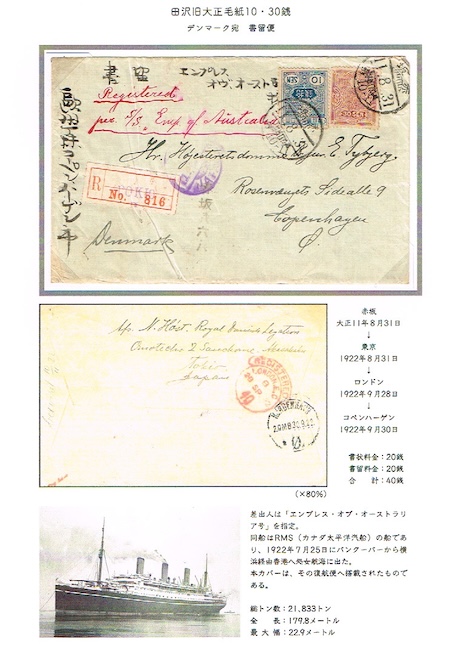 田沢旧大正毛紙10・30銭
デンマーク宛　書留便
書留
エンプレス
オヴ、オーストラ号
Registered
per S/S. Emp of Australia
Hr. Højesteretsdommer
E. Tybjerg
Rosenvængets Sidealle 9
Copenhagen
Ø.
Denmark
R
TOKYO
No. 816
10
SEN
c/o. N. Høst. Royal Danish Legation
Tokio
Japan
REGISTERED
LONDON
赤坂
大正11年8月31日
↓
東京
1922年8月31日
↓
ロンドン
1922年9月28日
↓
コペンハーゲン
1922年9月30日
書状料金：20銭
書留料金：20銭
合　　計：40銭
(×80%)
差出人は「エンプレス・オブ・オーストラリ
ア号」を指定。
同船はRMS（カナダ太平洋汽船）の船であ
り、1922年7月25日にバンクーバーから横
浜経由香港へ処女航海に出た。
本カバーは、その復航便へ搭載されたもので
ある。
総トン数：21,833トン
全　　長：179.8メートル
最 大 幅：22.9メートル